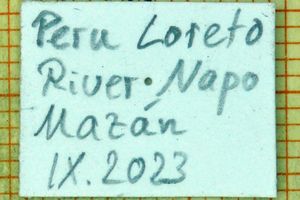 Peru Loreto
River Napo
Mazán
IX.2023